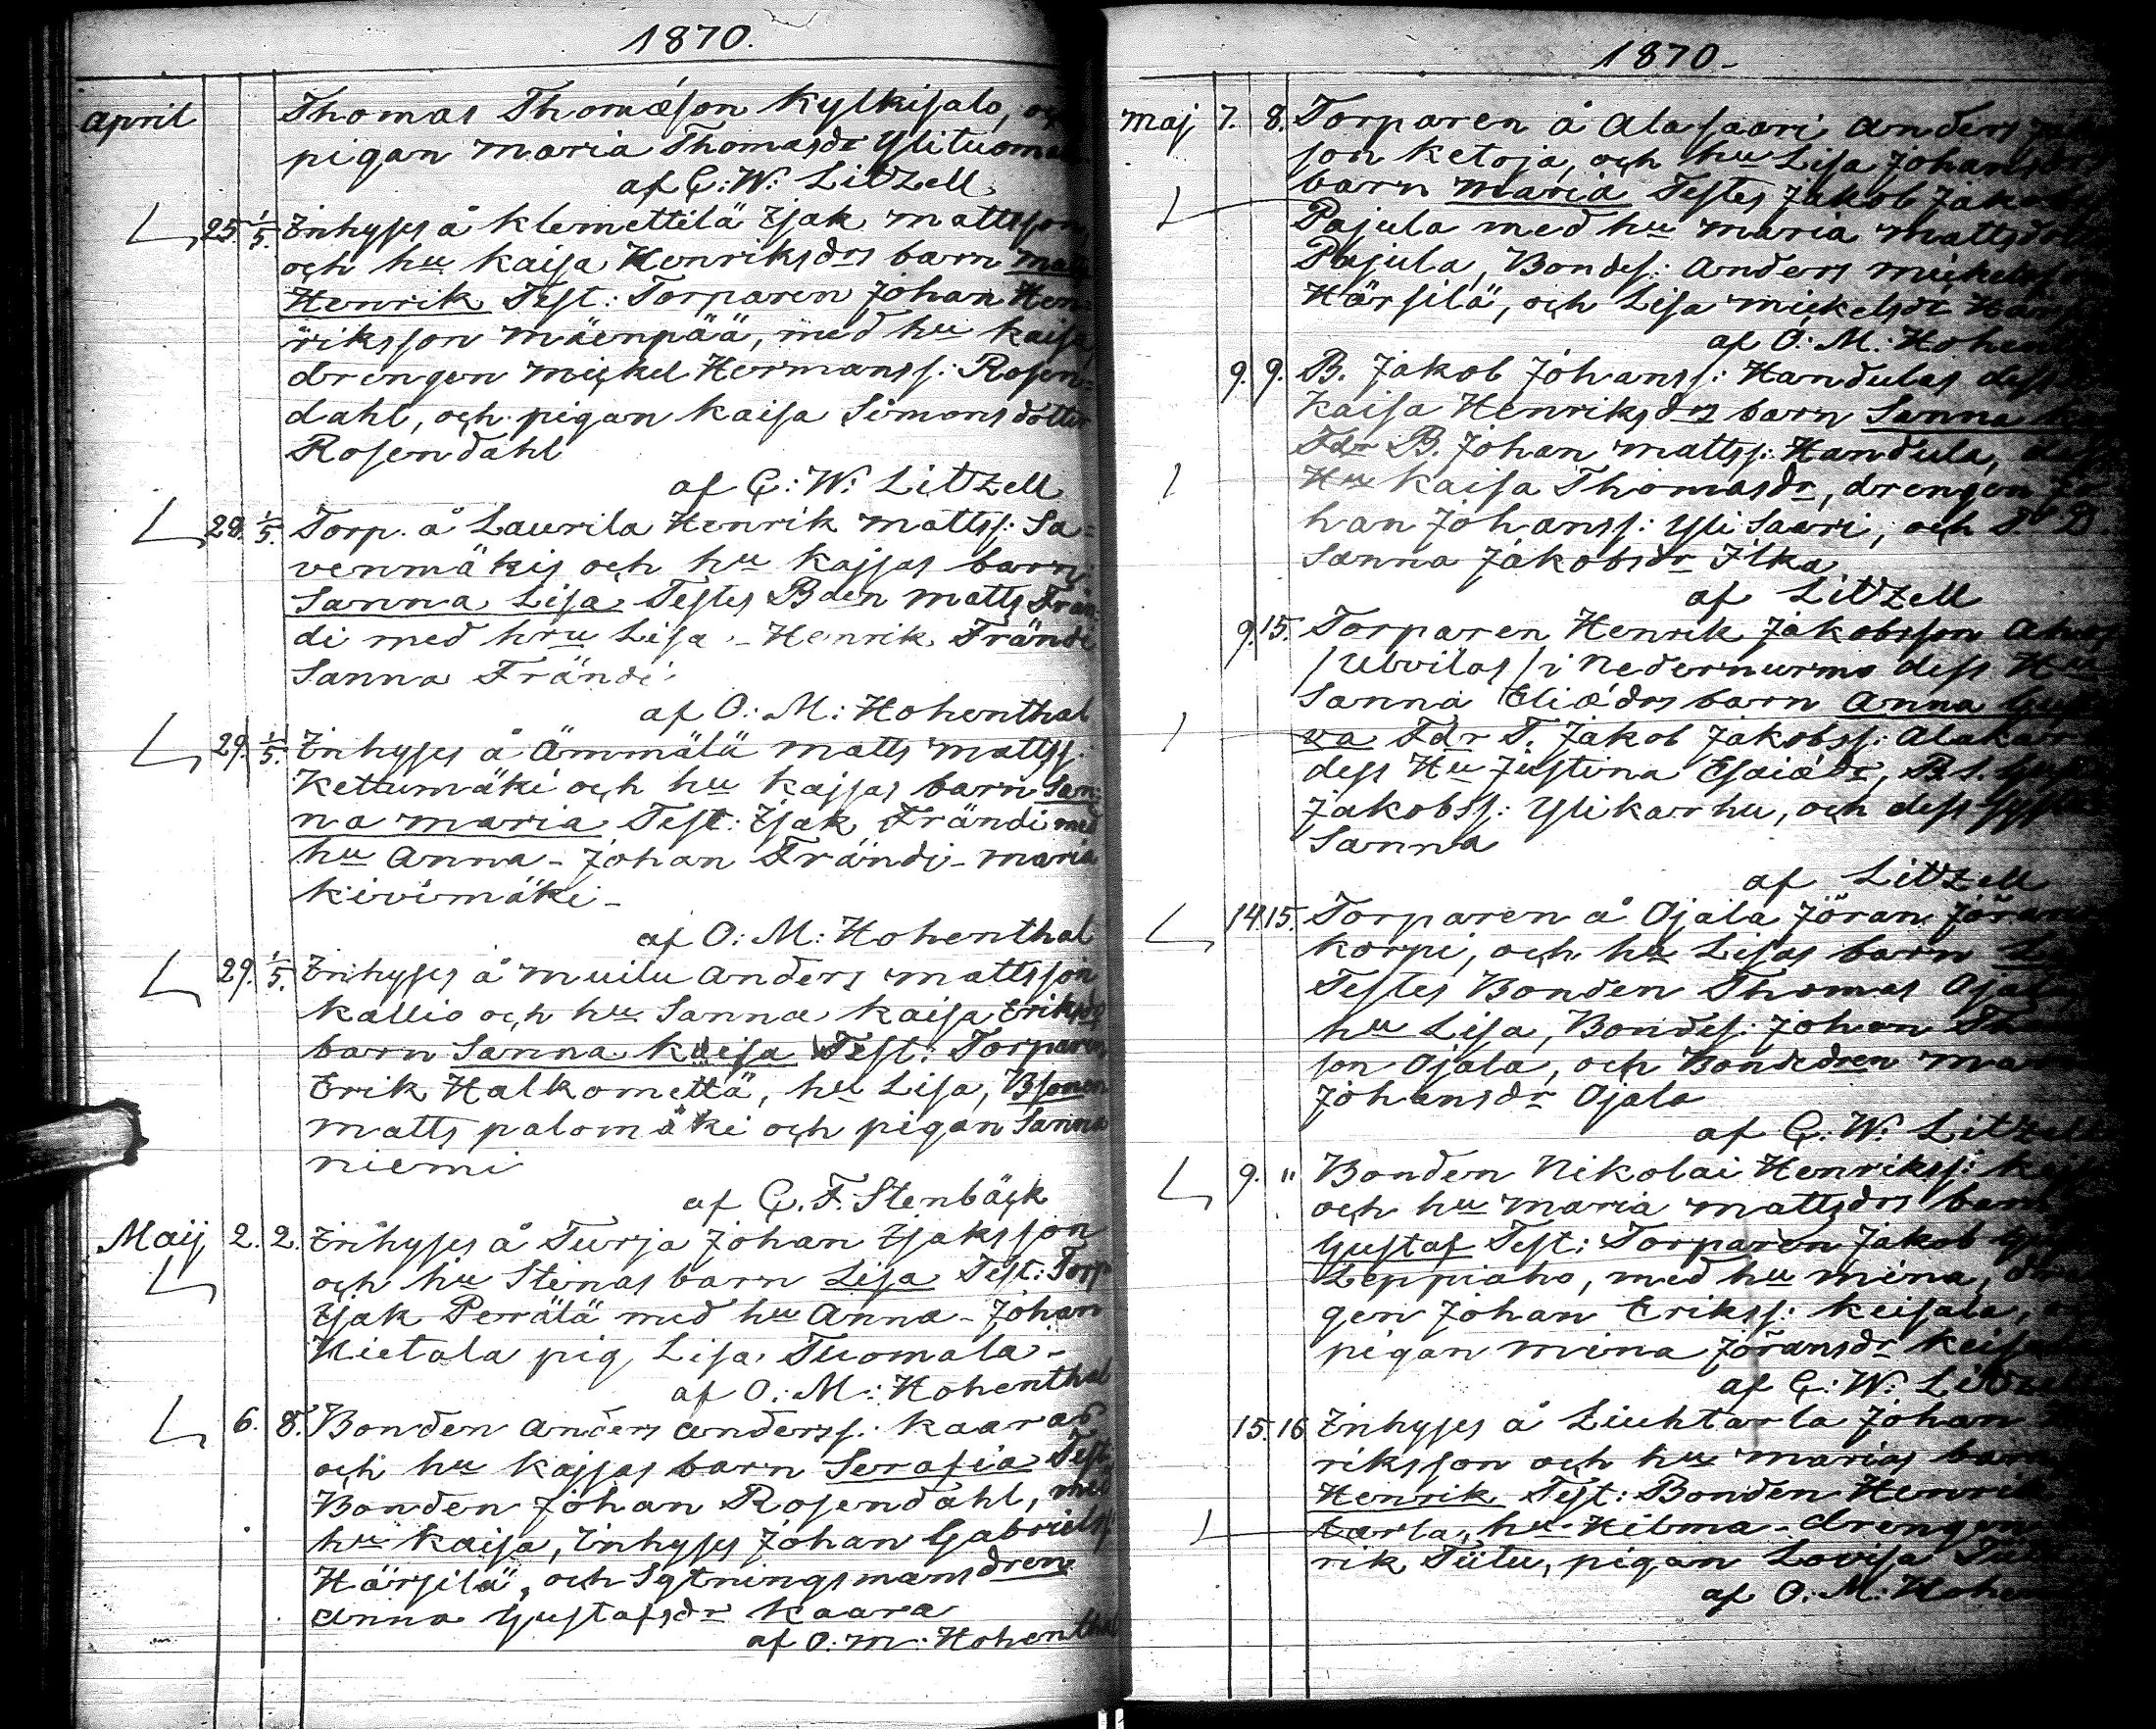 1870.
April
Thomas Thomæson Kylkisalo, och
pigan Maria Thomasdr Ylituomala
af C: W: Litzell
25. 1/5. Inhyses å Klemettilä Isak Mattsson
och hu Kaisa Henriksdrs barn Matts
Henrik Test: Torparen Johan Hen=
riksson Mäenpää, med hu Kaisa,
drengen Mickel Hermanss: Rosen=
dahl, och pigan Kaisa Simonsdotter
Rosendahl
af C: W: Litzell
28. 1/5. Torp. å Laurila Henrik Mattss: Sa=
venmäkis och hu Kajsas barn
Sanna Lisa Testes Bden Matts Frän
di med hru Lisa - Henrik Frändi
Sanna Frändi
af O: M: Hohenthal
29. 1/5. Inhyses å Ämmälä Matts Mattss:
Kettumäki och hu Kajsas barn San:
na Maria Test: Isak Frändi med
hu Anna - Johan Frändi - Maria
Kivimäki -
af O: M: Hohenthal
29. 1/5. Inhyses å Muilu Anders Mattsson
Kallio och hu Sanna Kaisa Eriksdrs
barn Sanna Kaisa Test: Torparen
Erik Halkomettä, hu Lisa, Bsonen
Matts Palomäki och pigan Sanna
Niemi
af C. F. Stenbäck
Maij 2. 2. Inhyses å Turja Johan Isaksson
och hu Stinas barn Lisa Test: Torp
Isak Perälä med hu Anna - Johan
Hietala pig Lisa Tuomala -
af O: M: Hohenthal
6. 8. Bonden Anders Anderss: Kaaras
och hu Kajsas barn Serafia Test
Bonden Johan Rosendahl, med
hu Kaisa, Inhyses Johan Gabrielss
Härsilä, och Sytningsmansdren
Anna Gustafsdr Kaara
af O: M: Hohenthal
1870.
Maj 7. 8. Torparen å Alasaari Anders
son Ketoja, och hu Lisa Johansdrs
barn Maria Testes Jakob Jakobs
Pajula med hu Maria Mattsdr
Pajula, Bondes: Anders Mickelss
Härsilä, och Lisa Mickelsdr Här
af O: M: Hohen
9. 9. B. Jakob Johanss: Handulas dess
Kaisa Henriksdrs barn Sanna
Fdr B. Johan Mattss: Handula, dess
Hu Kaisa Thomasdr, drengen Jo
han Johanss: Yli Saari, och T. D
Sanna Jakobsdr Ilka
af Litzell
9. 15. Torparen Henrik Jakobsson Aho
/Ulvilas/ i Nedernurmo dess Hu
Sanna Eliædrs barn Anna Gus
va Fdr T. Jakob Jakobss: Alakar
dess Hu Justina Esaiædr, B.S. Gust
Jakobss: Ylikarhu, och dess Syster
Sanna
af Litzell
14. 15. Torparen å Ojala Jöran Jöran
Korpi, och hu Lisas barn
Testes Bonden Thomas Ojala
hu Lisa, Bondes: Johan Thom
son Ojala, och Bondedren Mar
Johansdr Ojala
af C: W: Litzell
9. " Bonden Nikolai Henrikss:
och hu Maria Mattsdrs barn
Gustaf Test: Torparen Jakob
Leppiaho, med hu Mina, dren
gen Johan Erikss: Keisala,
pigan Mina Jöransdr Keisala
af C: W: Litzell
15. 16 Inhyses å Liuhtarla Johan
riksson och hu Marias barn
Henrik Test: Bonden Henrik
tarla, hu Hilma - drengen
rik Tiitu, pigan Lovisa
af O: M: Hohen